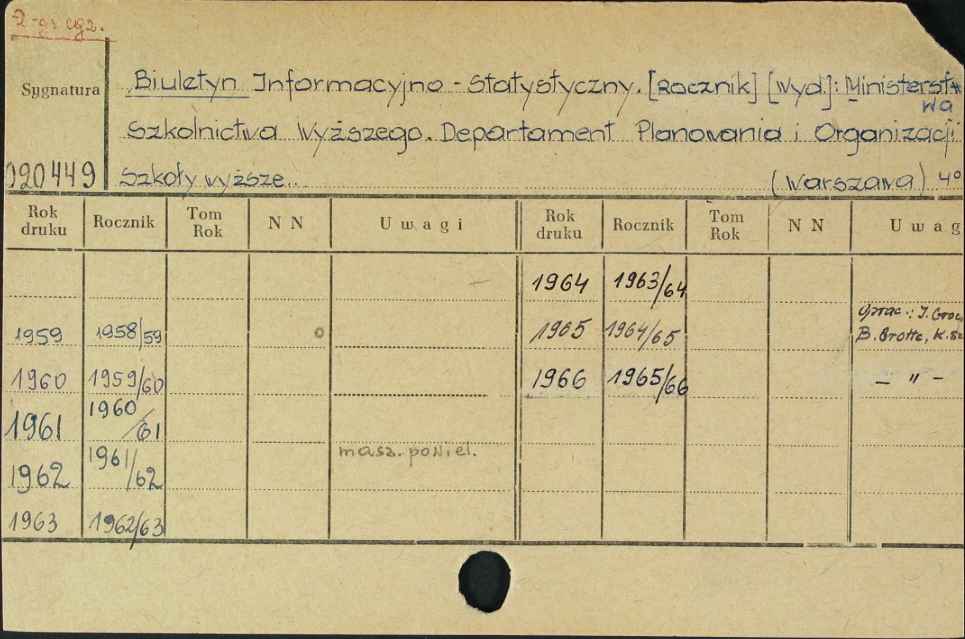 2-gi egz.
Sygnatura
Biuletyn Informacyjno-Statystyczny. [Rocznik] [Wyd]: Ministerst
wa
Szkolnictwa Wyższego. Departament Planowania i Organizacji
020449 Szkoły wyższe.. (Warszawa) 4°
Rok druku Rocznik Tom Rok NN Uwagi Rok druku Rocznik Tom Rok NN Uwag
1964 1963/64
1959 1958/59 o 1965 1964/65 Oprac.: J.
B. K.
1960 1959/60 1966 1965/66 — " —
1961 1960/61
1962 1961/62 masz. poniel.
1963 1962/63